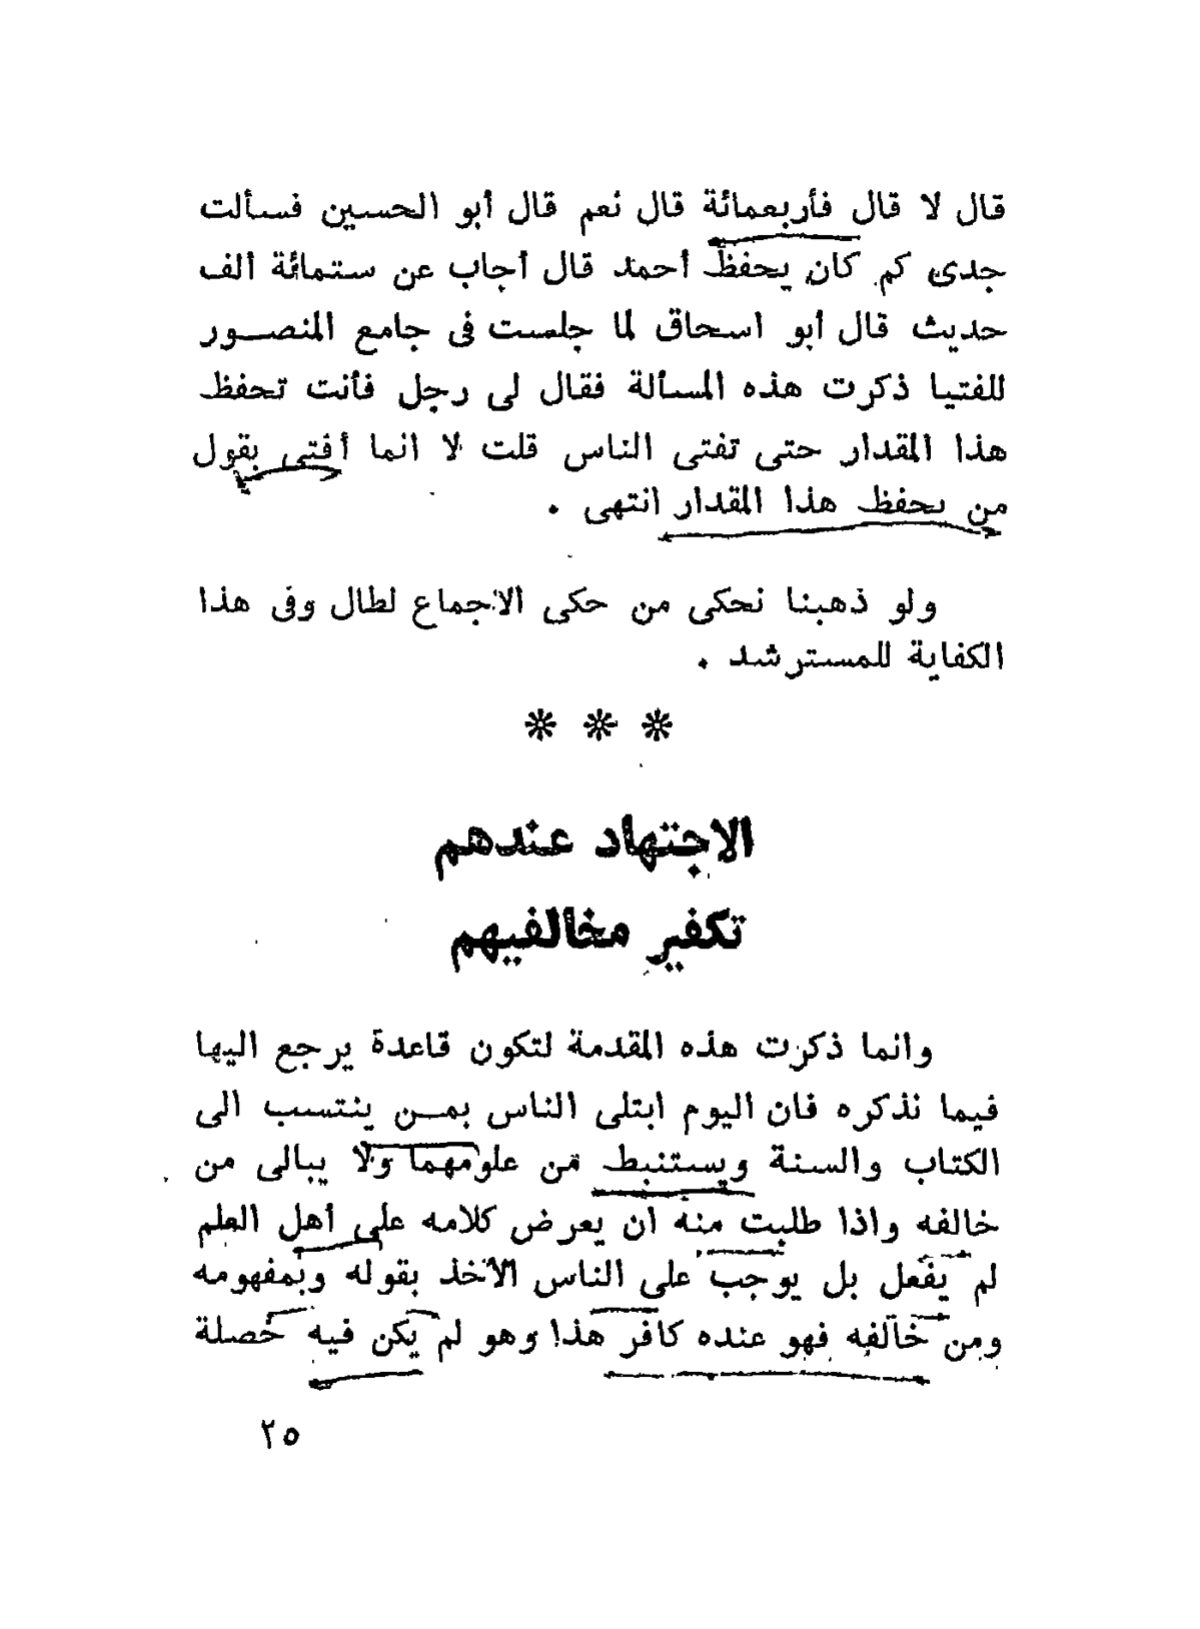 قال لا قال فأربعمائة قال نعم قال أبو الحسين فسألت
جدى كم كان يحفظ أحمد قال أجاب عن ستمائة ألف
حديث قال أبو اسحاق لما جلست فى جامع المنصور
للفتيا ذكرت هذه المسألة فقال لى رجل فأنت تحفظ
هذا المقدار حتى تفتى الناس قلت لا انما أفتى بقول
من يحفظ هذا المقدار انتهى .
ولو ذهبنا نحكى من حكى الاجماع لطال وفى هذا
الكفاية للمسترشد .
* * *
الاجتهاد عندهم
تكفير مخالفيهم
وانما ذكرت هذه المقدمة لتكون قاعدة يرجع اليها
فيما نذكره فان اليوم ابتلى الناس بمن ينتسب الى
الكتاب والسنة ويستنبط من علومهما ولا يبالى من
خالفه واذا طلبت منه أن يعرض كلامه على أهل العلم
لم يفعل بل يوجب على الناس الأخذ بقوله وبمفهومه
ومن خالفه فهو عنده كافر هذا وهو لم يكن فيه خصلة
٢٥